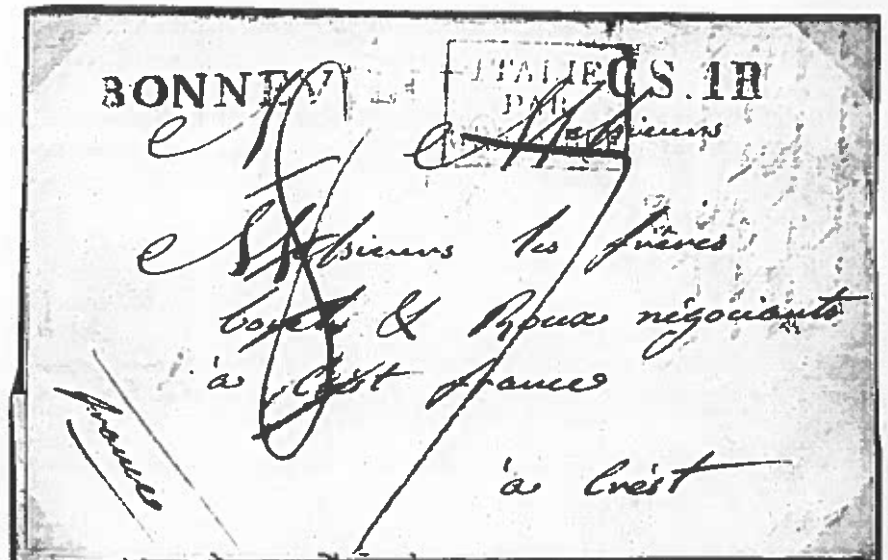 BONNEV
ITALIE
PAR
C.S. 1R
Messieurs
Messieurs les frères
& Roux négociants
à Crest france
à Crest
france